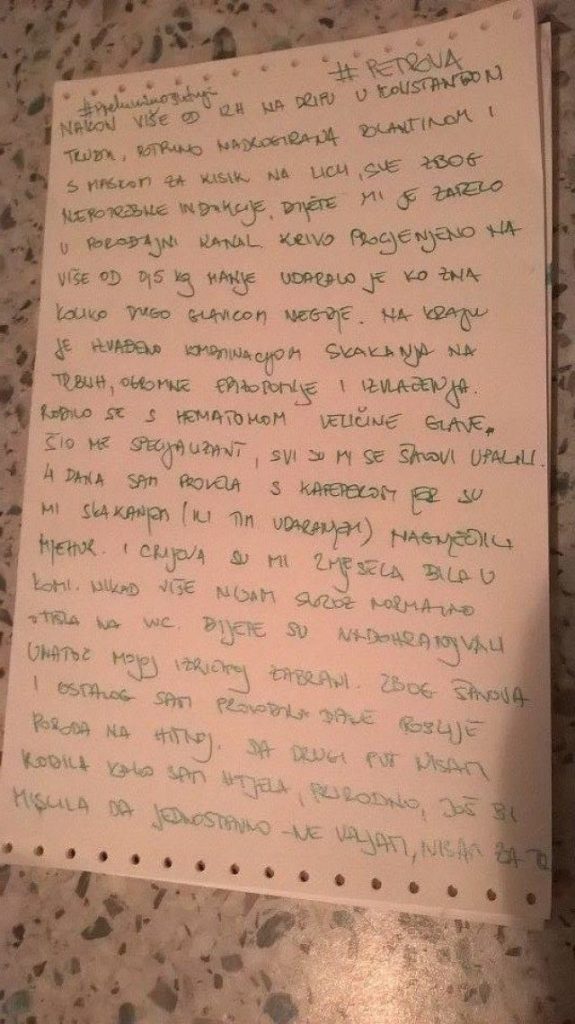 # PETROVA
#prekinimošutnju
NAKON VIŠE OD 12H NA DRIPU U KONSTANTNOM
TRUDU, POTPUNO NADROGIRANA DOLANTINOM I
S MASKOM ZA KISIK NA LICU, SVE ZBOG
NEPOTREBNE INDUKCIJE, DIJETE MI JE ZAPELO
U POROĐAJNI KANAL. KRIVO PROCJENJENO NA
VIŠE OD 0,5 kg MANJE UDARALO JE KO ZNA
KOLIKO DUGO GLAVICOM NEGDJE. NA KRAJU
JE IZVAĐENO KOMBINACIJOM SKAKANJA NA
TRBUH, OGROMNE EPIZOTOMIJE I IZVLAČENJA.
RODILO SE S HEMATOMOM VELIČINE GLAVE.
ŠIO ME SPECIJALIZANT, SVI SU MI SE ŠAVOVI UPALILI.
4 DANA SAM PROVELA S KATETEROM JER SU
MI SKAKANJEM (ILI TIM UDARANJEM) NAGNJEČILI
MJEHUR. I CRIJEVA SU MI 2 MJESECA BILA U
KOMI. NIKAD VIŠE NISAM SKROZ NORMALNO
OTIŠLA NA WC. DIJETE SU NADOHRANJIVALI
UNATOČ MOJOJ IZRIČITOJ ZABRANI. ZBOG ŠAVOVA
I OSTALOG SAM PROVODILA DANE POSLIJE
PORODA NA HITNOJ. DA DRUGI PUT NISAM
RODILA KAKO SAM HTJELA, PRIRODNO, JOŠ BI
MISLILA DA JEDNOSTAVNO NE VALJAM, NISAM ZA TO